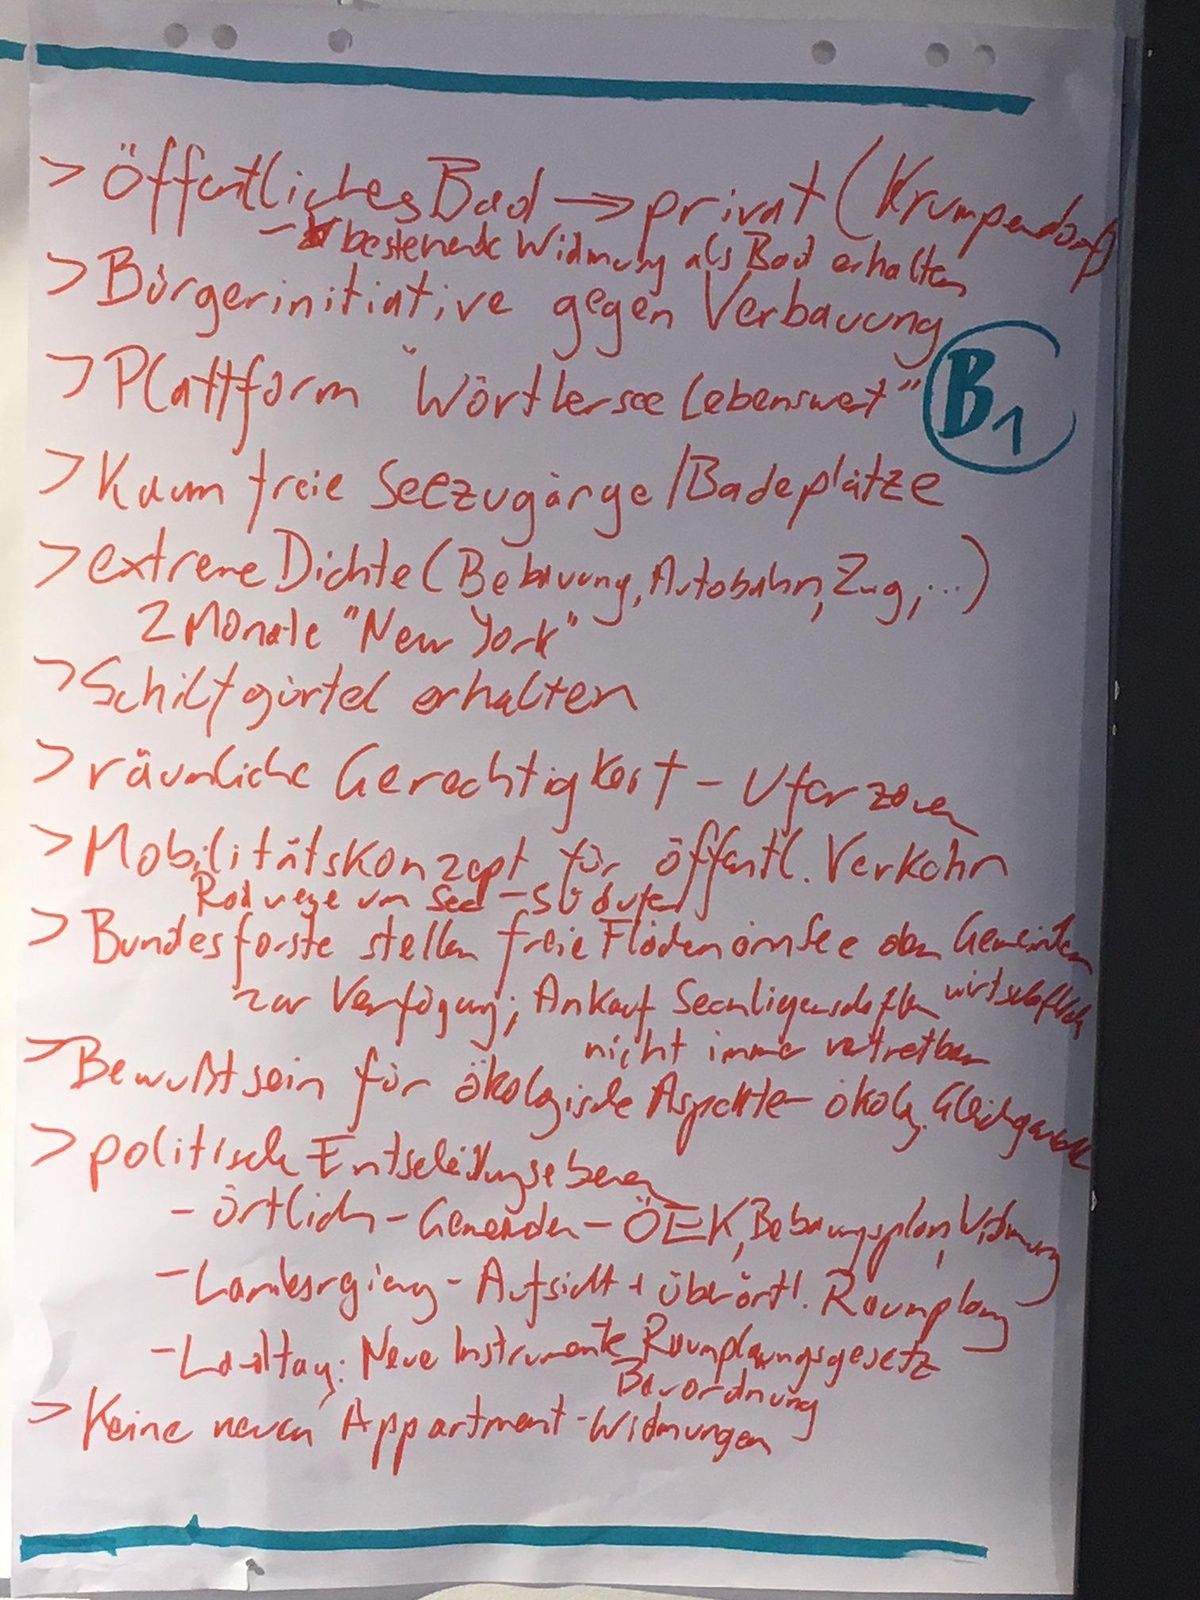 > Öffentliches Bad → privat (Krumpendorf)
- bestehende Widmung als Bad erhalten
> Bürgerinitiative gegen Verbauung
> Plattform "Wörtlersee Lebenswert"
B1
> Kaum freie Seezugänge/Badeplätze
> extreme Dichte (Bebauung, Autobahn, Zug, ...)
2 Monate "New York"
> Schilfgürtel erhalten
> räumliche Gerechtigkeit - Uferzonen
> Mobilitätskonzept für öffentl. Verkehr
Radwege um See - Südufer
> Bundesforste stellen freie Flächen am See den Gemeinden
zur Verfügung; Ankauf Seeliegenschaften wirtschaftlich
nicht immer vertretbar
> Bewußtsein für ökologische Aspekte - ökolog. Gleichgewicht
> politische Entscheidungsebenen
- örtlich - Gemeinden - ÖEK, Bebauungsplan, Widmung
- Landesregierung - Aufsicht + überörtl. Raumplanung
- Landtag: Neue Instrumente Raumplanungsgesetz
Bauordnung
> Keine neuen Appartment-Widmungen